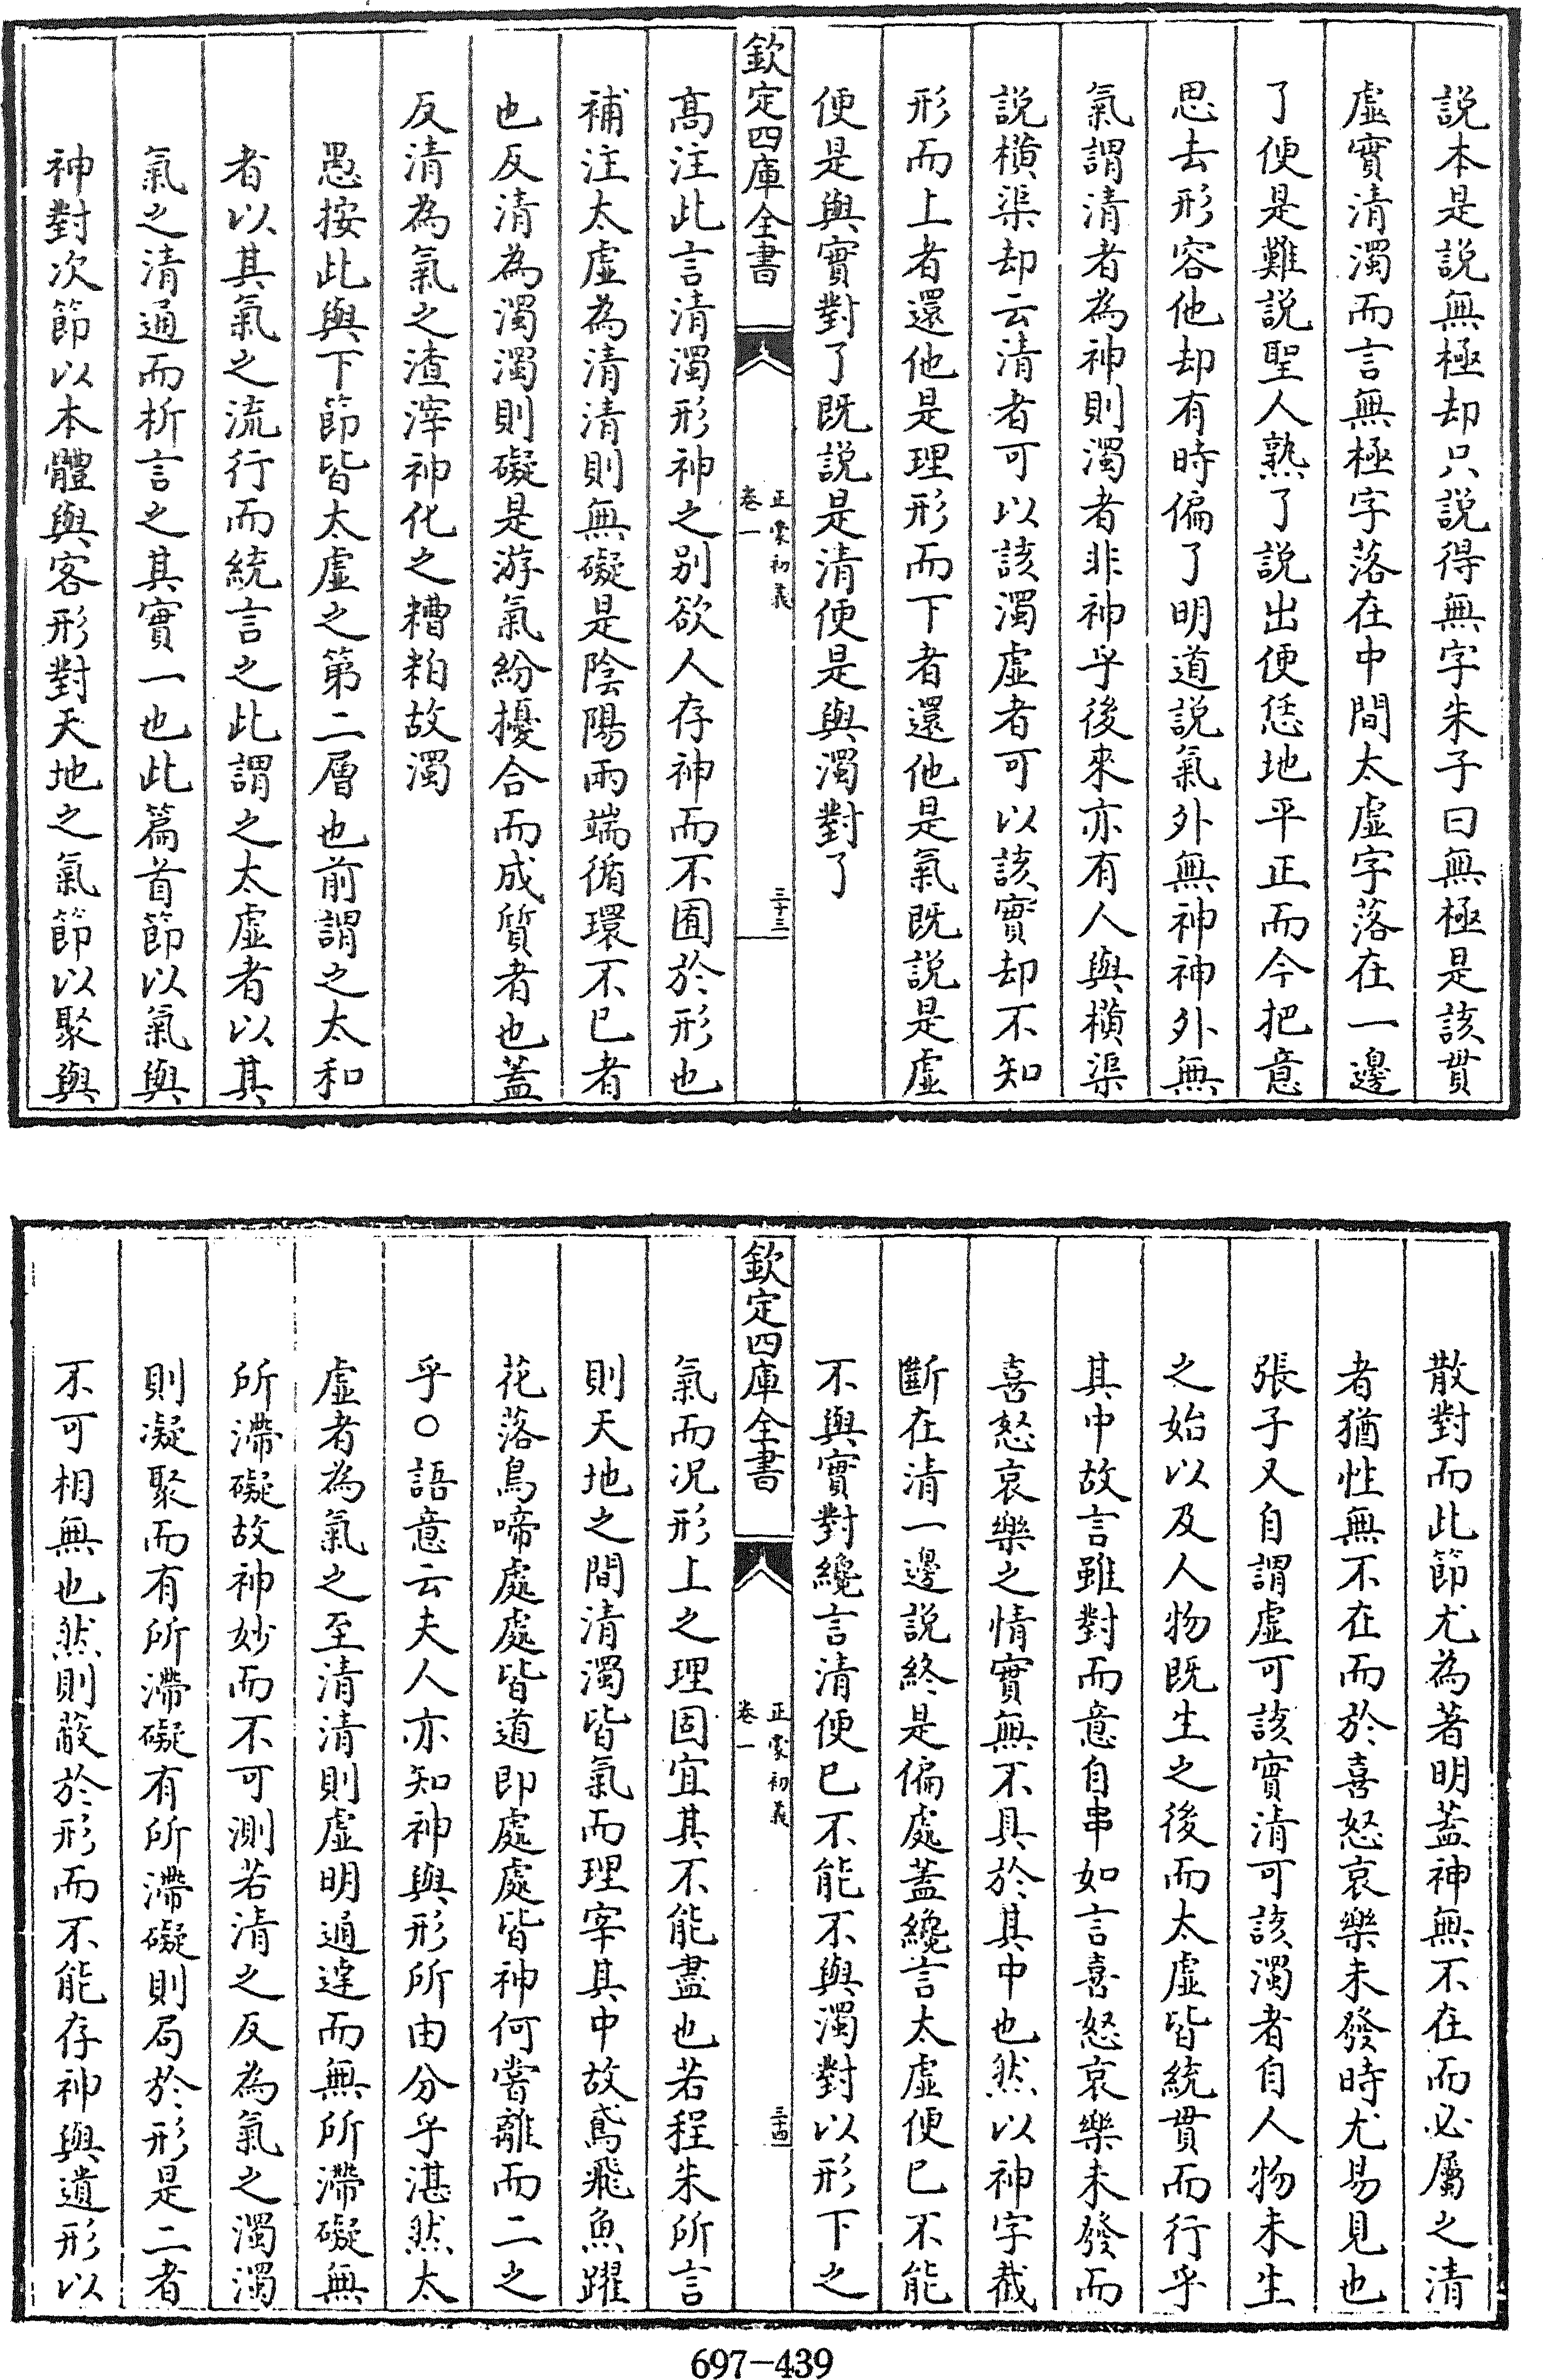 説本是説無極却只説得無字朱子曰無極是該貫
虛實清濁而言無極字落在中間太虛字落在一邊
了便是難説聖人熟了説出便恁地平正而今把意
思去形容他却有時偏了明道説氣外無神神外無
氣謂清者為神則濁者非神乎後來亦有人與橫渠
説橫渠却云清者可以該濁虛者可以該實却不知
形而上者還他是理形而下者還他是氣既説是虛
便是與實對了既説是清便是與濁對了
欽定四庫全書
正蒙初義
卷一
三十三
高注此言清濁形神之别欲人存神而不囿於形也
補注太虛為清清則無礙是陰陽兩端循環不已者
也反清為濁濁則礙是游氣紛擾合而成質者也蓋
反清為氣之渣滓神化之糟粕故濁
愚按此與下節皆太虛之第二層也前謂之太和
者以其氣之流行而統言之此謂之太虛者以其
氣之清通而析言之其實一也此篇首節以氣與
神對次節以本體與客形對天地之氣節以聚與
散對而此節尤為著明蓋神無不在而必屬之清
者猶性無不在而於喜怒哀樂未發時尤易見也
張子又自謂虛可該實清可該濁者自人物未生
之始以及人物既生之後而太虛皆統貫而行乎
其中故言雖對而意自串如言喜怒哀樂未發而
喜怒哀樂之情實無不具於其中也然以神字截
斷在清一邊説終是偏處蓋纔言太虛便已不能
不與實對纔言清便已不能不與濁對以形下之
欽定四庫全書
正蒙初義
卷一
三十四
氣而况形上之理固宜其不能盡也若程朱所言
則天地之間清濁皆氣而理宰其中故鳶飛魚躍
花落鳥啼處處皆道即處處皆神何嘗離而二之
乎○語意云夫人亦知神與形所由分乎湛然太
虛者為氣之至清清則虛明通達而無所滯礙無
所滯礙故神妙而不可測若清之反為氣之濁濁
則凝聚而有所滯礙有所滯礙則局於形是二者
不可相無也然則蔽於形而不能存神與遺形以
697-439